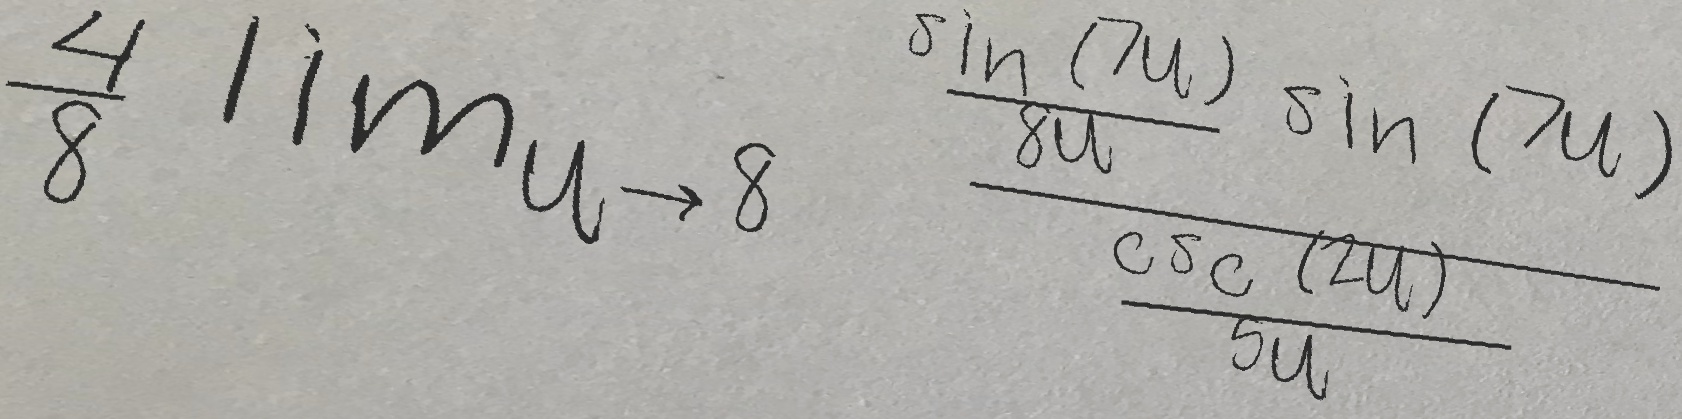 \frac{4}{8} \lim_{u \to 8} \frac{\frac{\sin(7u)}{8u} \sin(7u)}{\frac{\csc(2u)}{5u}}